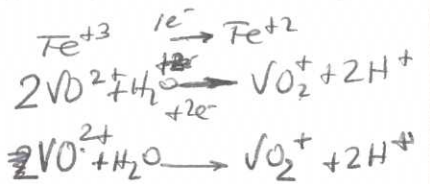 Fe⁺³ 1e⁻ → Fe⁺²
2VO²⁺ + H₂O → +2e⁻ VO₂⁺ + 2H⁺
VO²⁺ + H₂O → VO₂⁺ + 2H⁺